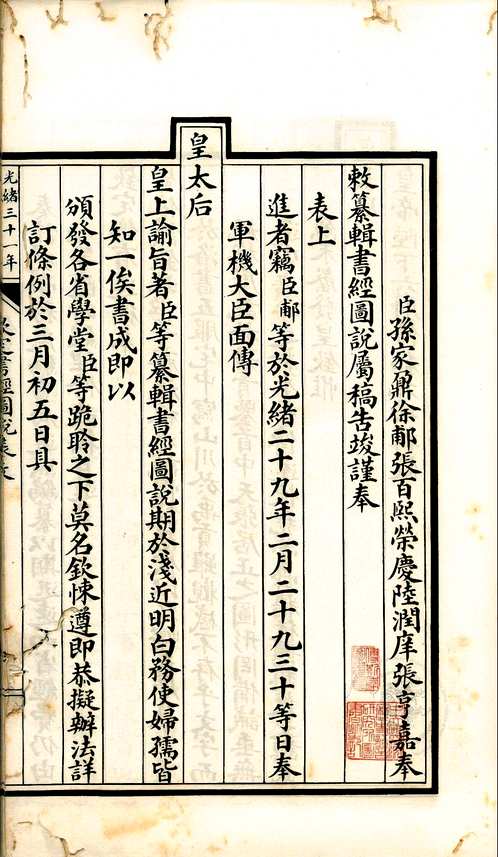 臣孫家鼐徐郙張百熙榮慶陸潤庠張亨嘉奉
敕纂輯書經圖說屬稿告竣謹奉
表上
進者竊臣郙等於光緒二十九年二月二十九三十等日奉
軍機大臣面傳
皇太后
皇上諭旨著臣等纂輯書經圖說期於淺近明白務使婦孺皆
知一俟書成即以
頒發各省學堂臣等跪聆之下莫名欽悚遵即恭擬辦法詳
訂條例於三月初五日具
光緒三十一年
書經圖說表文